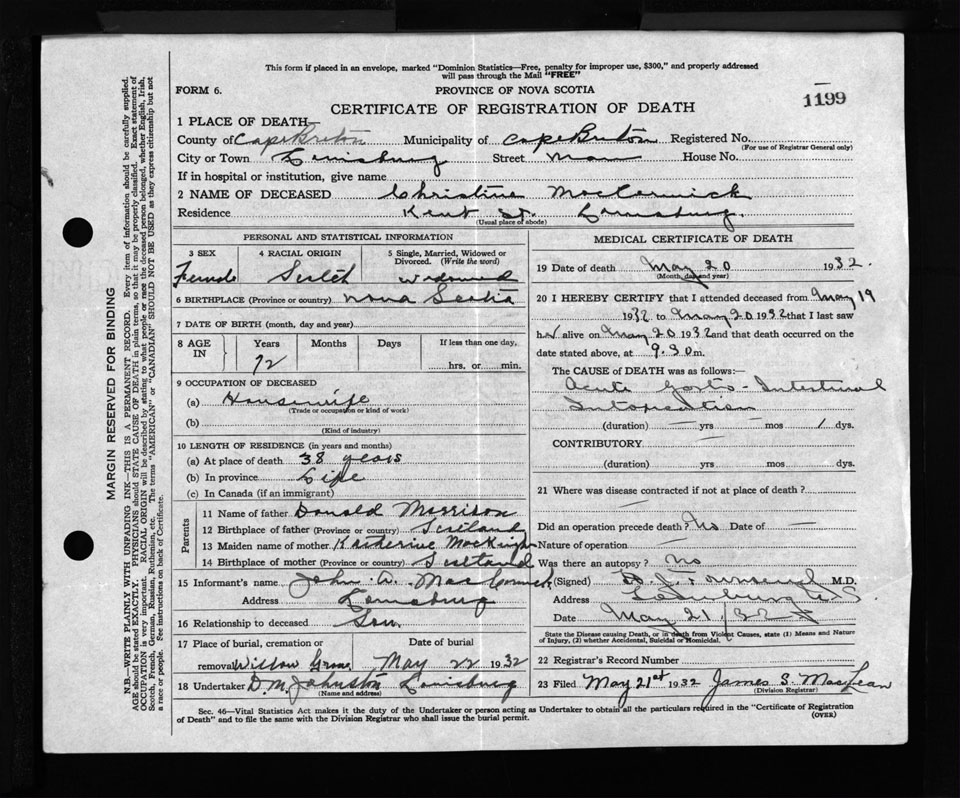 This form if placed in an envelope, marked "Dominion Statistics—Free, penalty for improper use, $300," and properly addressed
will pass through the Mail "FREE"
FORM 6. PROVINCE OF NOVA SCOTIA
CERTIFICATE OF REGISTRATION OF DEATH 1199
1 PLACE OF DEATH
County of Cape Breton Municipality of Cape Breton Registered No.
(For use of Registrar General only)
City or Town Louisburg Street Main House No.
If in hospital or institution, give name
2 NAME OF DECEASED Christine MacCormick
Residence Kent St. Louisburg.
(Usual place of abode)
PERSONAL AND STATISTICAL INFORMATION
3 SEX 4 RACIAL ORIGIN 5 Single, Married, Widowed or
Divorced. (Write the word)
Female Scotch widowed
6 BIRTHPLACE (Province or country) Nova Scotia
7 DATE OF BIRTH (month, day and year)
8 AGE IN Years Months Days If less than one day,
72 hrs. or min.
9 OCCUPATION OF DECEASED
(a) Housewife
(Trade or occupation or kind of work)
(b)
(Kind of industry)
10 LENGTH OF RESIDENCE (in years and months)
(a) At place of death 38 years
(b) In province Life
(c) In Canada (if an immigrant)
Parents
11 Name of father Donald Morrison
12 Birthplace of father (Province or country) Scotland
13 Maiden name of mother Katherine
14 Birthplace of mother (Province or country) Scotland
15 Informant's name John A. MacCormick
Address Louisburg
16 Relationship to deceased Son.
17 Place of burial, cremation or Date of burial
removal Willow Grove May 22 1932
18 Undertaker D.M. Johnston Louisburg
(Name and address)
MEDICAL CERTIFICATE OF DEATH
19 Date of death May 20 1932.
(Month, day and year)
20 I HEREBY CERTIFY that I attended deceased from May 19
1932 to May 20 1932 that I last saw
her alive on May 20 1932 and that death occurred on the
date stated above, at 9.30 m.
The CAUSE of DEATH was as follows:
Acute Gastro-Intestinal
Intoxication
(duration) — yrs — mos 1 dys.
CONTRIBUTORY —
(duration) yrs mos dys.
21 Where was disease contracted if not at place of death?
—
Did an operation precede death? No Date of —
Nature of operation —
Was there an autopsy? No
(Signed) M.D.
Address Louisburg N.S.
Date May 21/32
State the Disease causing Death, or in death from Violent Causes, state (1) Means and Nature
of Injury, (2) whether Accidental, Suicidal or Homicidal.
22 Registrar's Record Number
23 Filed May 21st 1932 James S. MacLean
(Division Registrar)
Sec. 46—Vital Statistics Act makes it the duty of the Undertaker or person acting as Undertaker to obtain all the particulars required in the "Certificate of Registration
of Death" and to file the same with the Division Registrar who shall issue the burial permit. (OVER)
MARGIN RESERVED FOR BINDING
N.B.—WRITE PLAINLY WITH UNFADING INK—THIS IS A PERMANENT RECORD. Every item of information should be carefully supplied.
AGE should be stated EXACTLY. PHYSICIANS should STATE CAUSE OF DEATH in plain terms, so that it may be properly classified. Exact statement of
OCCUPATION is very important. RACIAL ORIGIN will be described by stating to what people or race the deceased person belonged, whether English, Irish,
Scotch, French, German, Russian, Ruthenian, etc. The terms "AMERICAN" or "CANADIAN" SHOULD NOT BE USED as they express citizenship but not
a race or people. See instructions on back of Certificate.